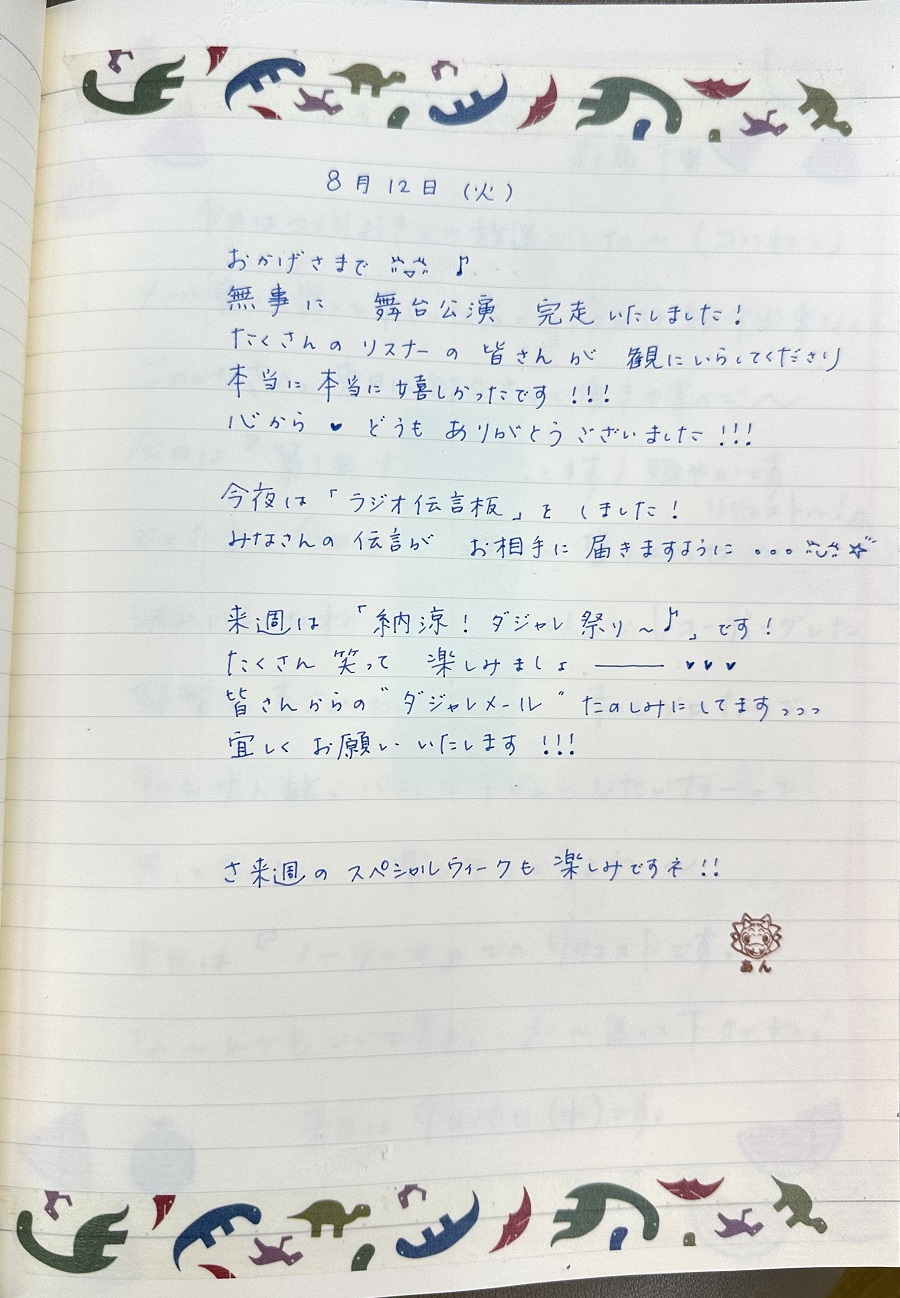 8月12日(火)
おかげさまで ♪
無事に 舞台公演 完走いたしました!
たくさんのリスナーの皆さんが 観にいらしてくださり
本当に本当に嬉しかったです!!!
心から♥どうもありがとうございました!!!
今夜は「ラジオ伝言板」をしました!
みなさんの伝言が お相手に届きますように...☆
来週は「納涼!ダジャレ祭り〜♪」です!
たくさん笑って 楽しみましょ——♥♥♥
皆さんからの"ダジャレメール"たのしみにしてますっっっ
宜しくお願いいたします!!!
さ来週のスペシャルウィークも楽しみですネ!!
あん